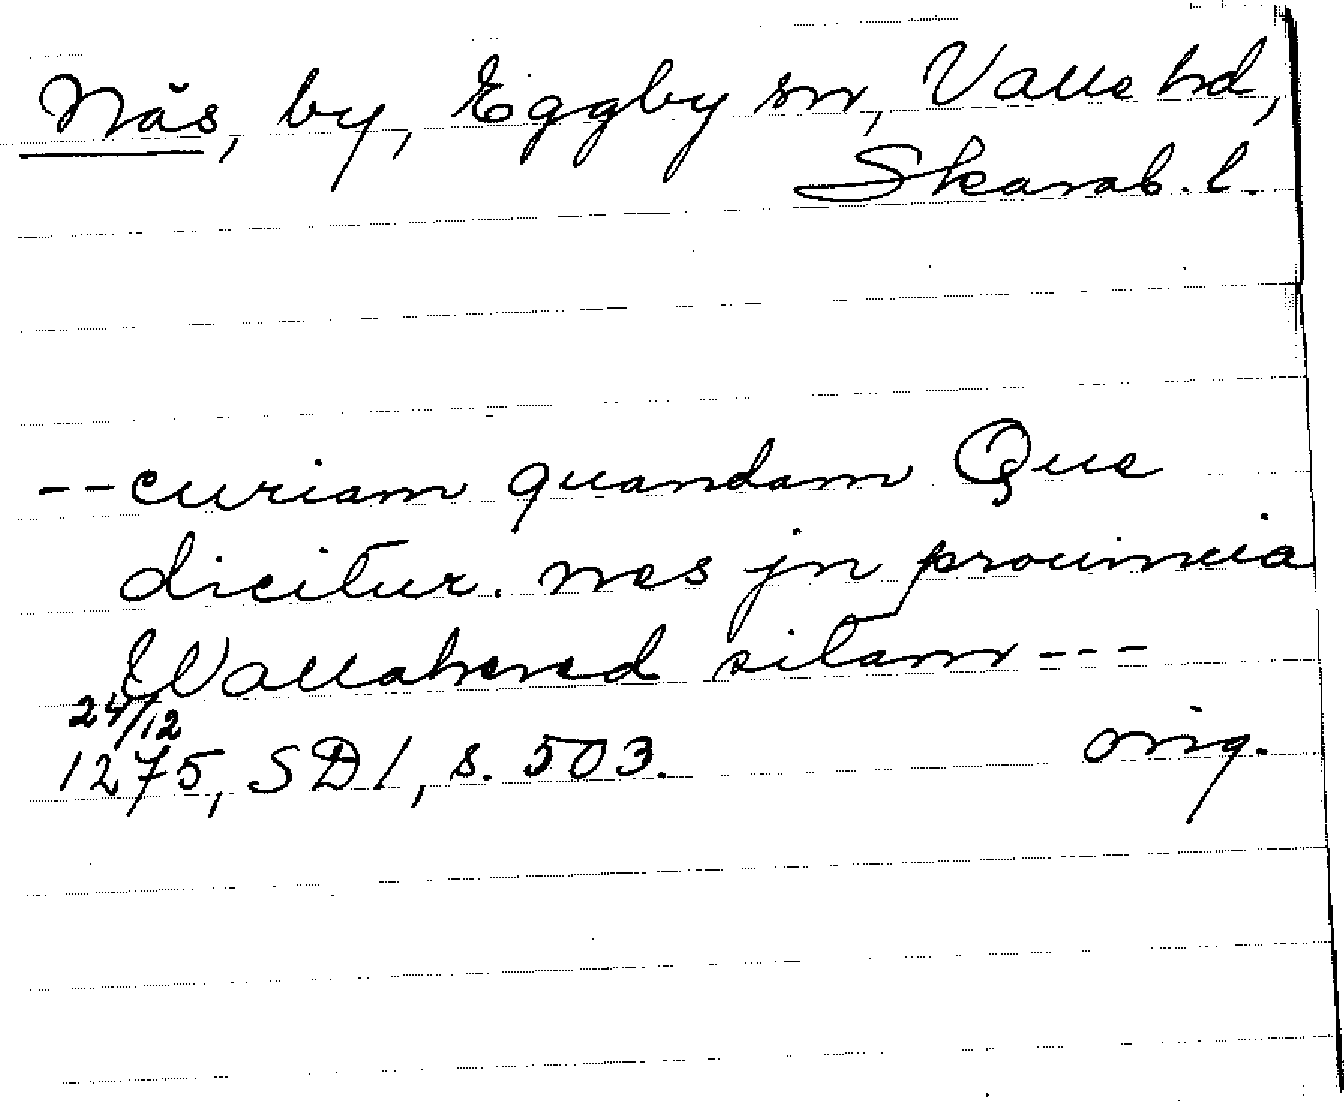 Näs, by, Eggby sn, Valle hd,
Skarab. l.
-- curiam quandam Que
dicitur. nes jn prouincia
Wallahered sitam ---
24/12
1275, SD 1, s. 503. orig.